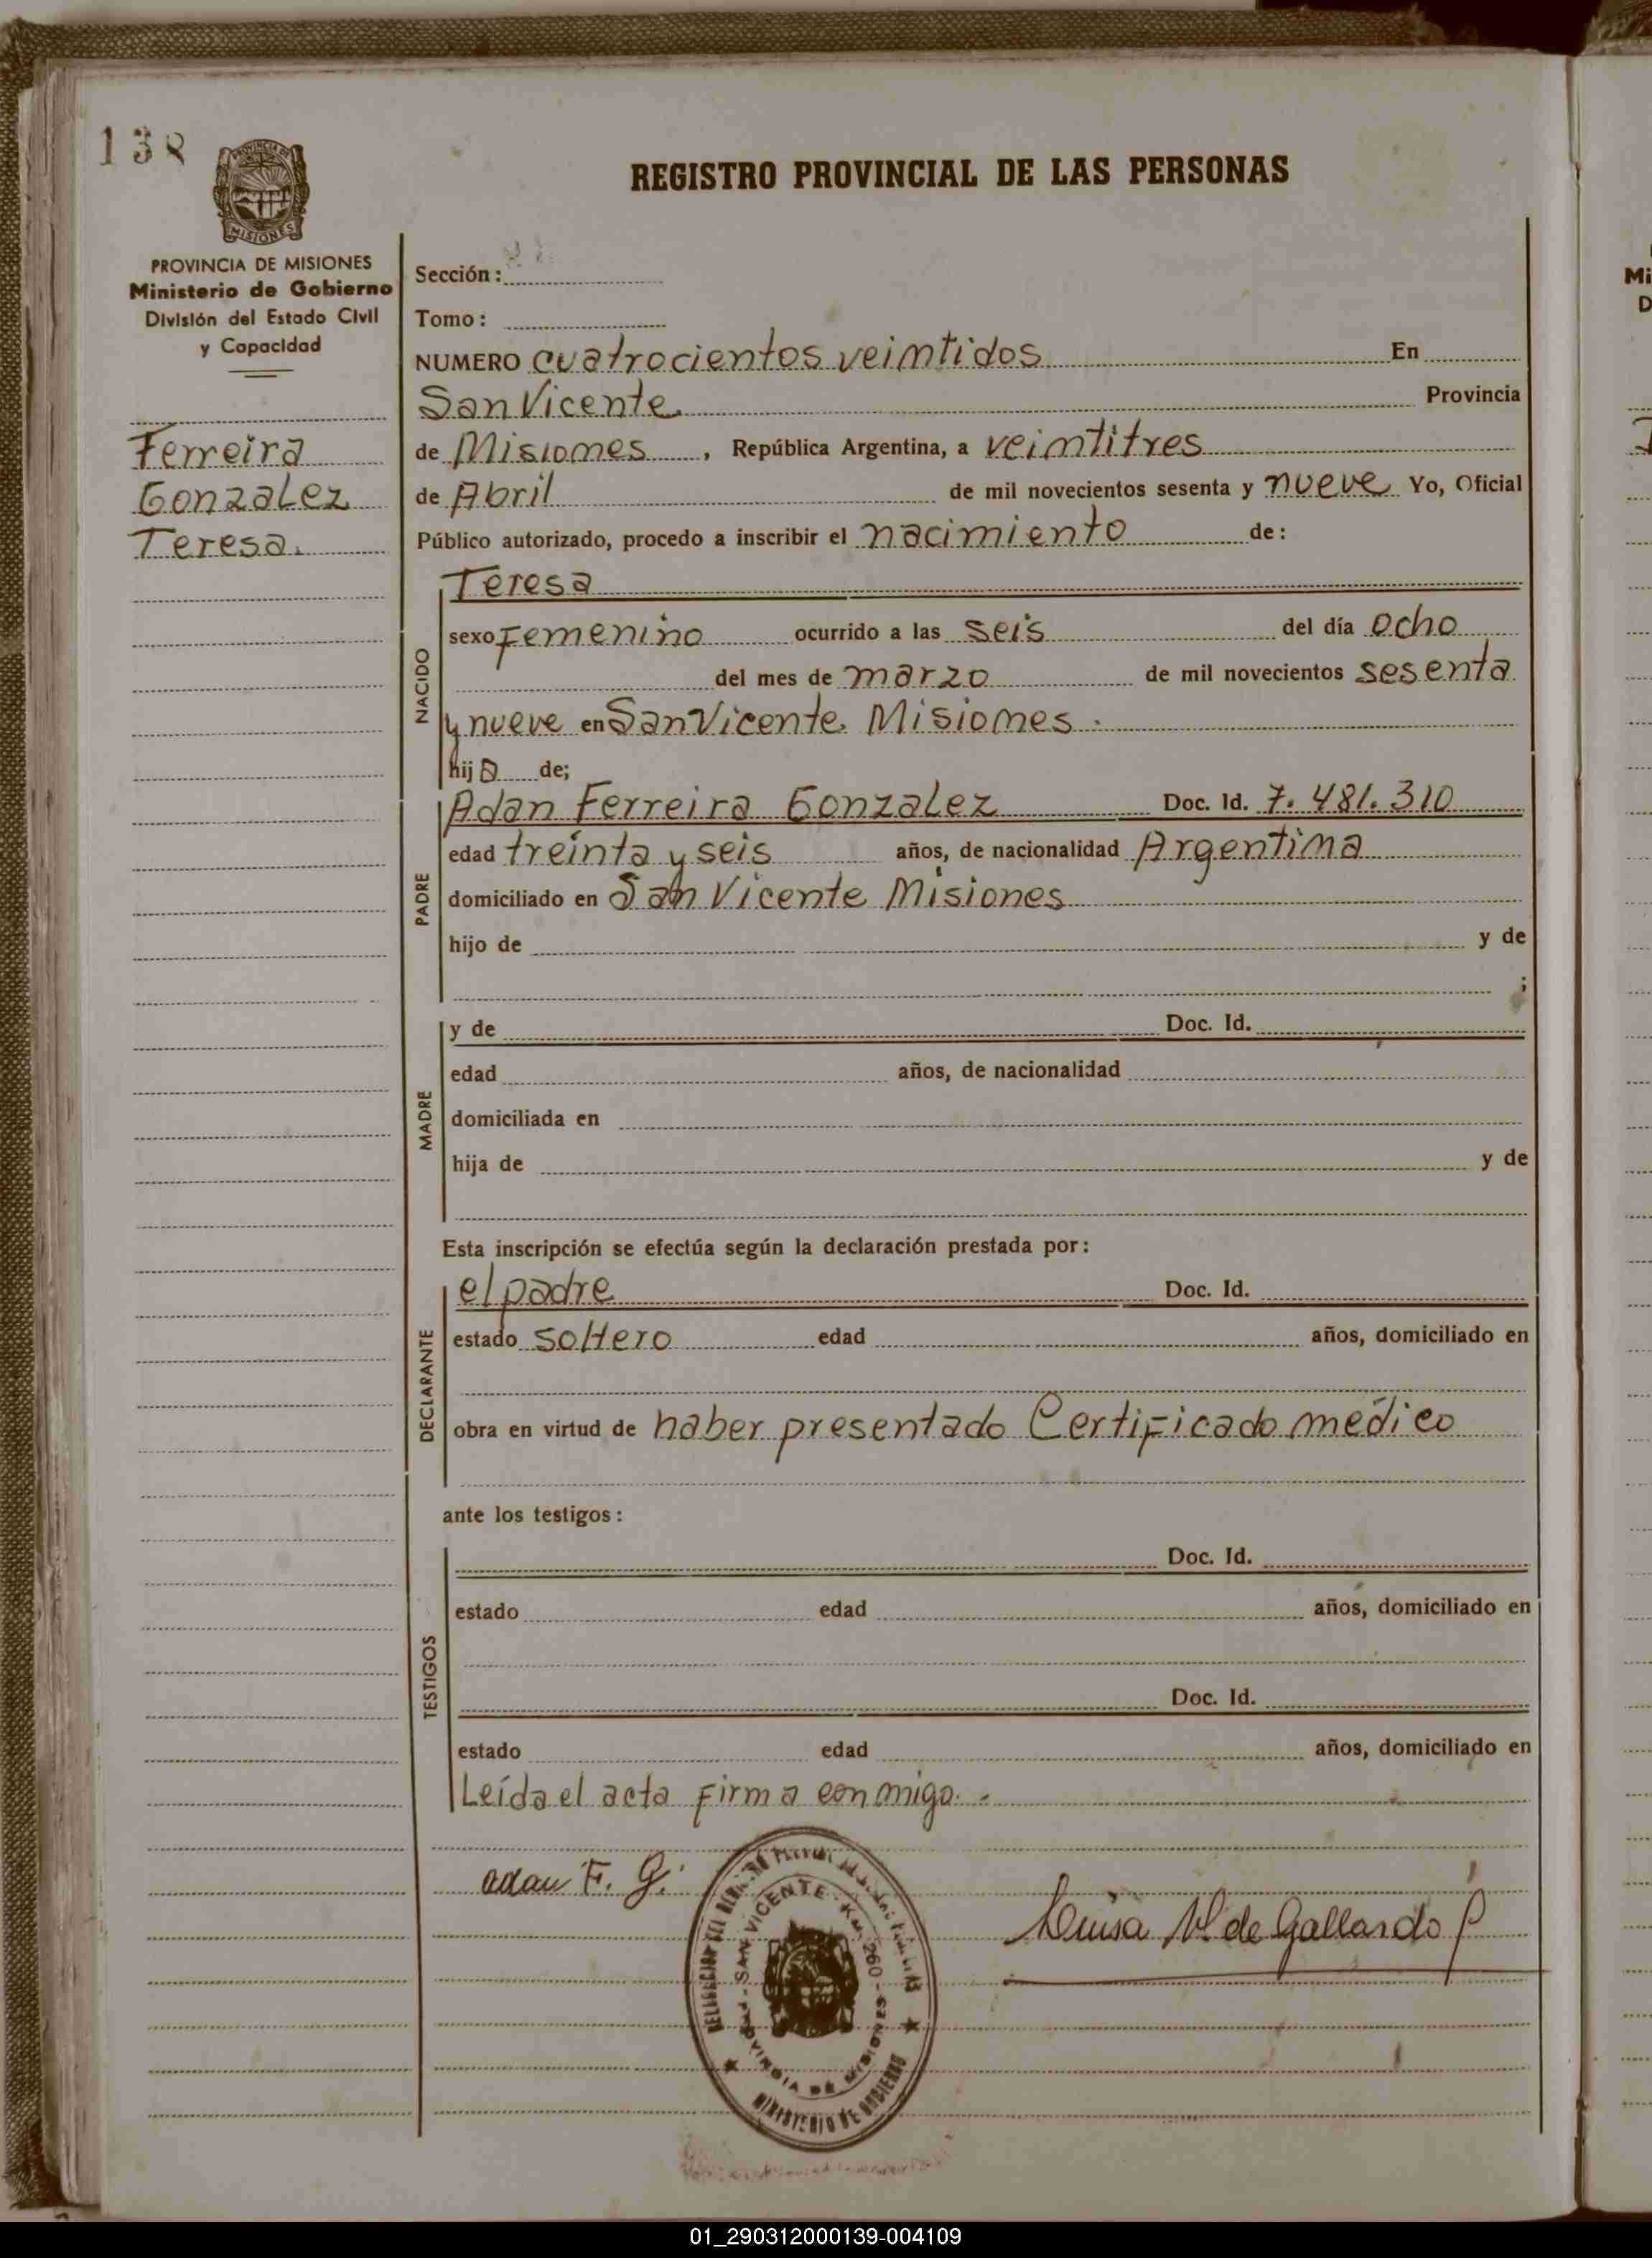 138
PROVINCIA DE
MISIONES
REGISTRO PROVINCIAL DE LAS PERSONAS
PROVINCIA DE MISIONES
Ministerio de Gobierno
División del Estado Civil
y Capacidad
Ferreira
Gonzalez
Teresa.
Sección:
Tomo:
NUMERO cuatrocientos veimtidos En
San Vicente Provincia
de Misiomes, República Argentina, a veimtitres
de Abril de mil novecientos sesenta y nueve Yo, Oficial
Público autorizado, procedo a inscribir el nacimiento de:
NACIDO
Teresa
sexo Femenino ocurrido a las seis del día ocho
del mes de marzo de mil novecientos sesenta
y nueve en San Vicente Misiomes.
hija de;
PADRE
Adan Ferreira Gonzalez Doc. Id. 7.481.310
edad treinta y seis años, de nacionalidad Argentima
domiciliado en San Vicente Misiones
hijo de y de
;
MADRE
y de Doc. Id.
edad años, de nacionalidad
domiciliada en
hija de y de
Esta inscripción se efectúa según la declaración prestada por:
DECLARANTE
el padre Doc. Id.
estado soltero edad años, domiciliado en
obra en virtud de haber presentado Certificado médico
ante los testigos:
TESTIGOS
Doc. Id.
estado edad años, domiciliado en
Doc. Id.
estado edad años, domiciliado en
Leída el acta firma conmigo.
adan F. G.
Luisa de Gallardo
DELEGACION DEL
SAN VICENTE - KM. 260 -
PROVINCIA DE MISIONES
MINISTERIO DE GOBIERNO
Mi
D
01_290312000139-004109